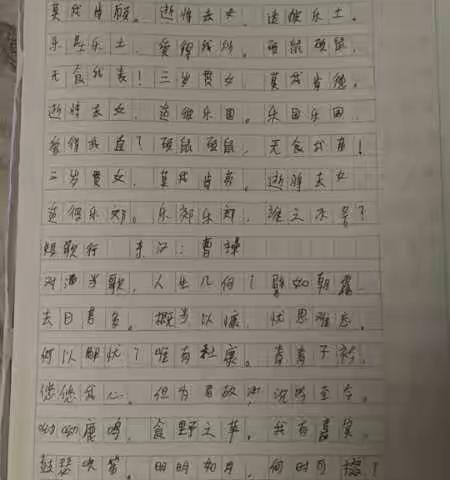 莫我肯顾。逝将去女,适彼乐土。
乐土乐土,爰得我所。硕鼠硕鼠,
无食我麦!三岁贯女,莫我肯德。
逝将去女,适彼乐国。乐国乐国,
爰得我直?硕鼠硕鼠,无食我苗!
三岁贯女,莫我肯劳。逝将去女
适彼乐郊。乐郊乐郊,谁之永号?
短歌行 东汉:曹操
对酒当歌,人生几何?譬如朝露
去日苦多。慨当以慷,忧思难忘。
何以解忧?唯有杜康。青青子衿,
悠悠我心。但为君故,沉吟至今。
呦呦鹿鸣,食野之苹。我有嘉宾,
鼓瑟吹笙。明明如月,何时可掇?